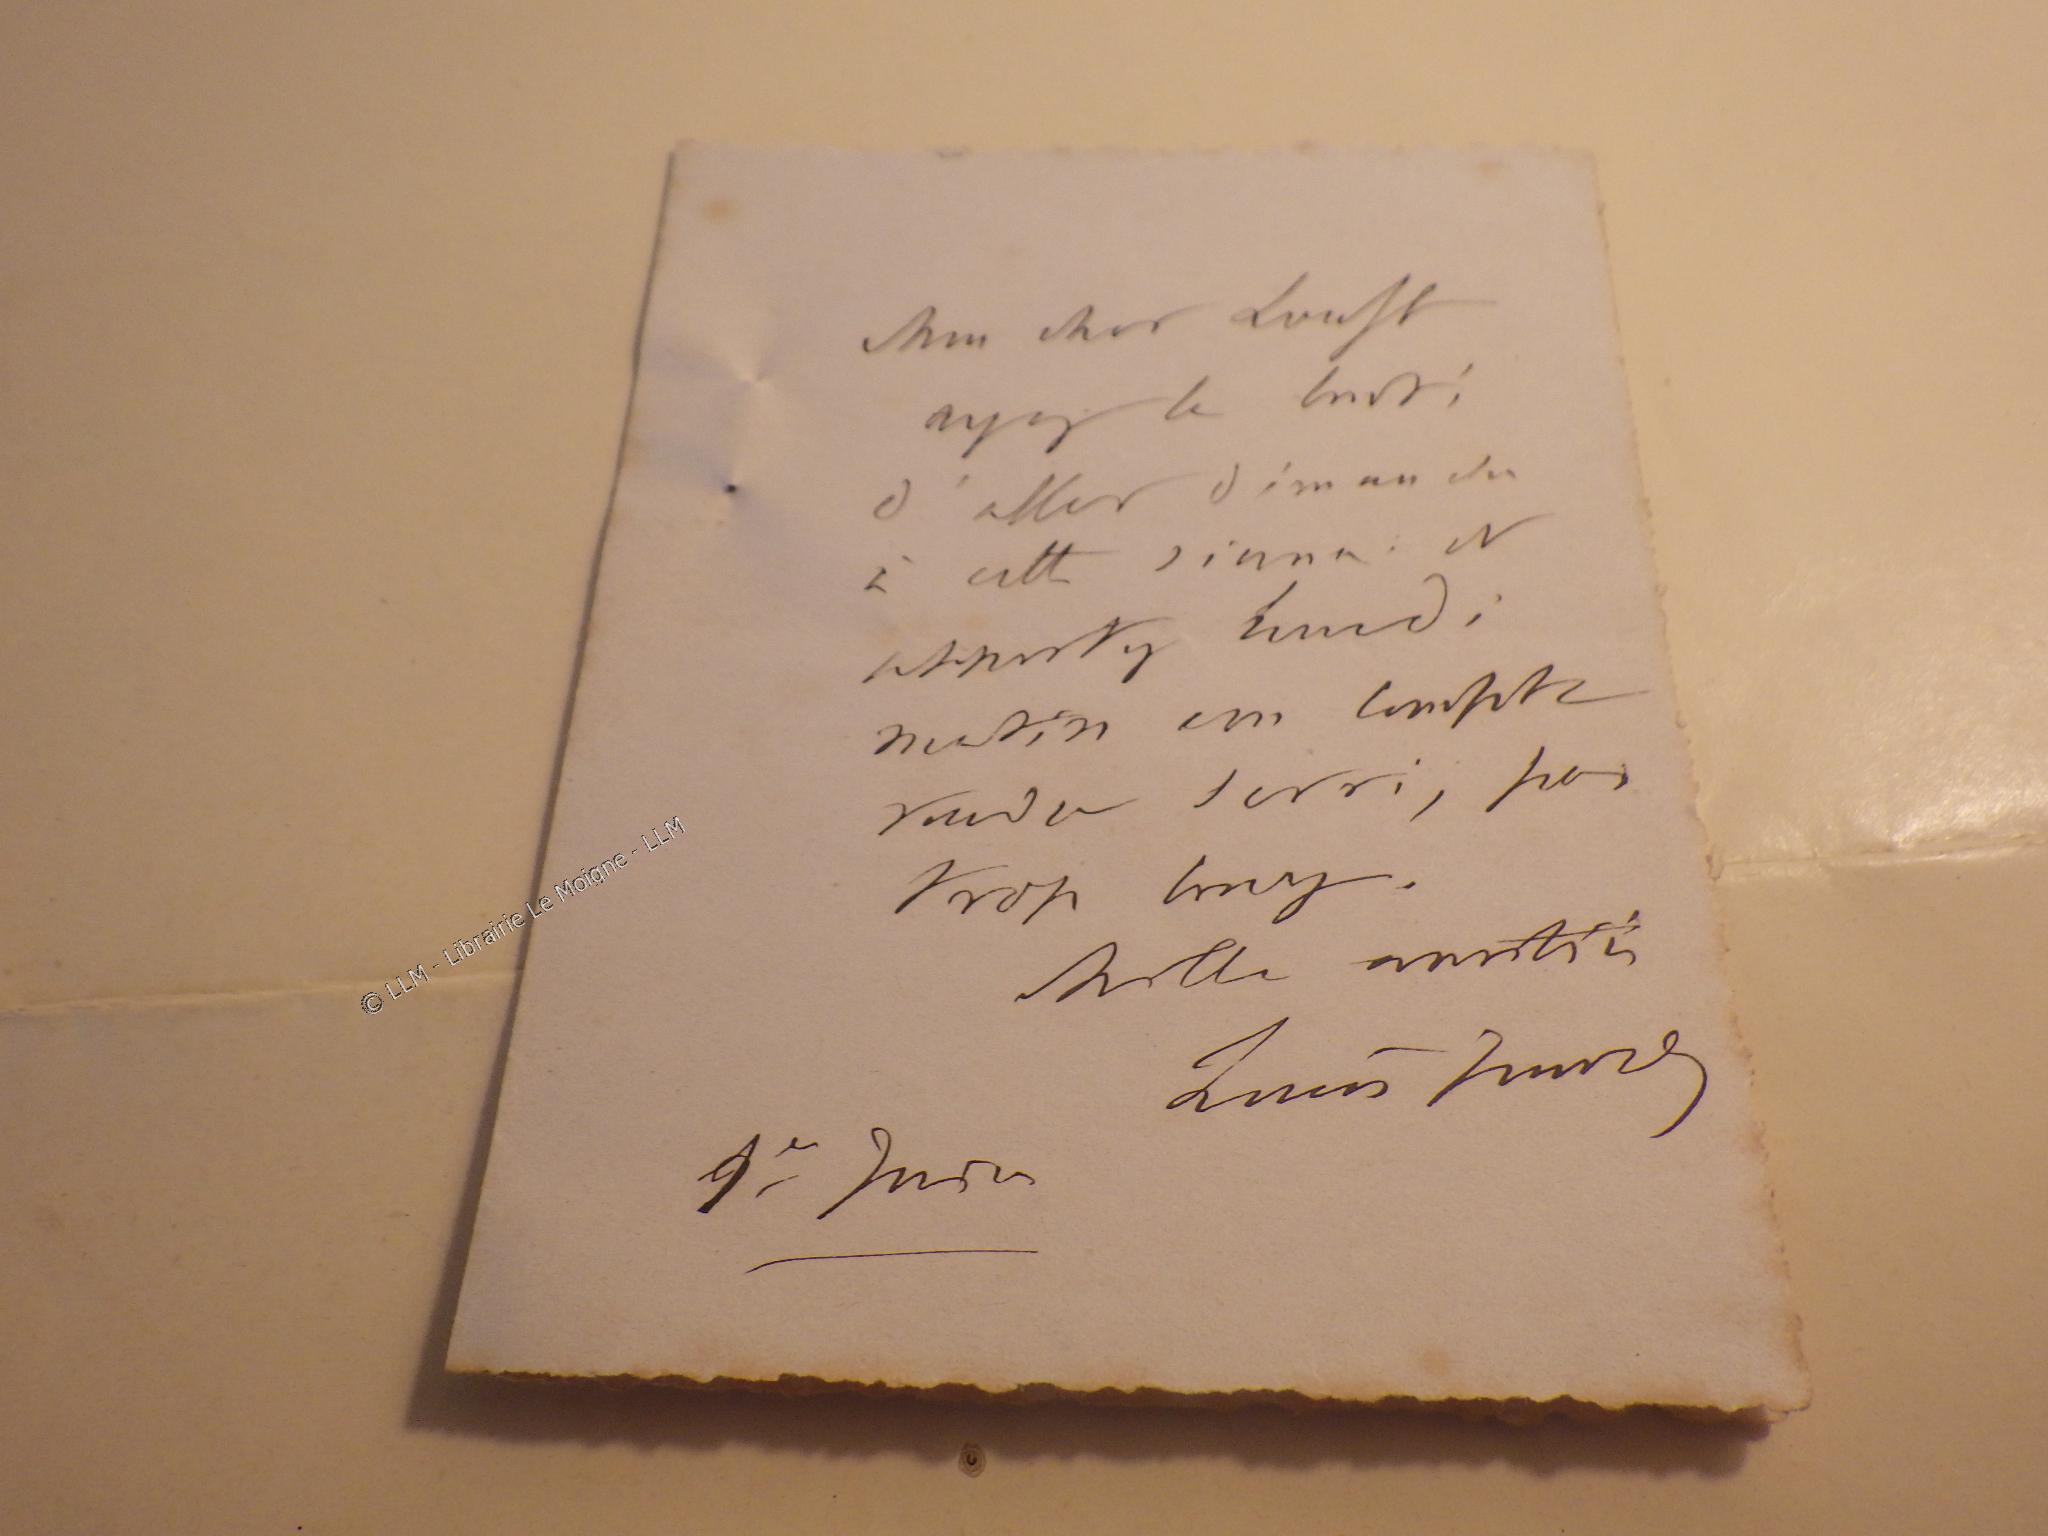 Mon cher
ayez la bonté
d'aller dimanche
à cette séance et
apportez lundi
matin un compte
rendu serré, pas
trop long.
Mille amitiés
Louis
© LLM - Librairie Le Moigne - LLM